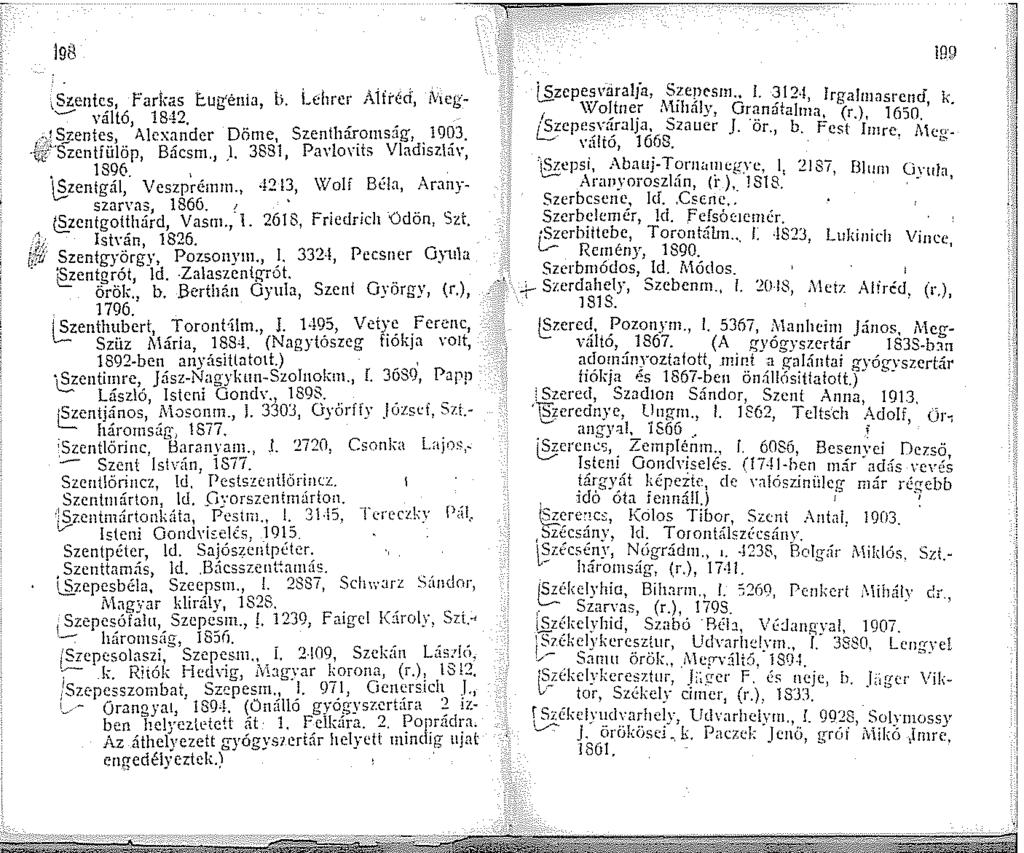 198
Szentes, Farkas Eugénia, b. Lehrer Alfréd, Meg-
váltó, 1842.
Szentes, Alexander Döme, Szentháromság, 1903.
Szentfülöp, Bácsm., l. 3881, Pavlovits Vladiszláv,
1896.
Szentgál, Veszprémm., 4213, Wolf Béla, Arany-
szarvas, 1866.
Szentgotthárd, Vasm., l. 2618, Friedrich Ödön, Szt.
István, 1826.
Szentgyörgy, Pozsonym., l. 3324, Pecsner Gyula
Szentgrót, ld. Zalaszentgrót.
örök., b. Berthán Gyula, Szent György, (r.),
1796.
Szenthubert, Torontálm., l. 1495, Vetye Ferenc,
Szüz Mária, 1884. (Nagytószeg fiókja volt,
1892-ben anyásittatott.)
Szentimre, Jász-Nagykun-Szolnokm., l. 3689, Papp
László, Isteni Gondv., 1898.
Szentjános, Mosonm., l. 3303, Györffy József, Szt.-
háromság, 1877.
Szentlőrinc, Baranyam., l. 2720, Csonka Lajos,
Szent István, 1877.
Szentlőrincz, ld. Pestszentlőrincz.
Szentmárton, ld. Gyorszentmárton.
Szentmártonkáta, Pestm., l. 3145, Tereczky Pál,
Isteni Gondviselés, 1915.
Szentpéter, ld. Sajószentpéter.
Szenttamás, ld. Bácsszenttamás.
Szepesbéla, Szeepsm., l. 2887, Schwarz Sándor,
Magyar klirály, 1828.
Szepesófalu, Szepesm., l. 1239, Faigel Károly, Szt.-
háromság, 1856.
Szepesolaszi, Szepesm., l. 2409, Szekán László,
k. Ritók Hedvig, Magyar korona, (r.), 1842.
Szepesszombat, Szepesm., l. 971, Genersich J.,
Őrangyal, 1894. (Önálló gyógyszertára 2 iz-
ben helyeztetett át 1. Felkára. 2. Poprádra.
Az áthelyezett gyógyszertár helyett mindig ujat
engedélyeztek.)
199
Szepesváralja, Szepesm., l. 3124, Irgalmasrend, k.
Woltner Mihály, Granátalma, (r.), 1650.
Szepesváralja, Szauer J. ör., b. Fest Imre, Meg-
váltó, 1668.
Szepsi, Abauj-Tornamegye, l. 2187, Blum Gyula,
Aranyoroszlán, (r.), 1818.
Szerbcsene, ld. Csene.
Szerbelemér, ld. Felsőelemér.
Szerbittebe, Torontálm., l. 4823, Lukinich Vince,
Remény, 1890.
Szerbmódos, ld. Módos.
Szerdahely, Szebenm., l. 2048, Metz Alfréd, (r.),
1818.
Szered, Pozonym., l. 5367, Manheim János, Meg-
váltó, 1867. (A gyógyszertár 1838-ban
adományoztatott, mint a galántai gyógyszertár
fiókja és 1867-ben önállósittatott.)
Szered, Szadion Sándor, Szent Anna, 1913.
Szerednye, Ungm., l. 1862, Teltsch Adolf, Őr-
angyal, 1866
Szerencs, Zemplénm., l. 6086, Besenyei Dezső,
Isteni Gondviselés. (1741-ben már adás vevés
tárgyát képezte, de valószinüleg már régebb
idő óta fennáll.)
Szerencs, Kolos Tibor, Szent Antal, 1903.
Szécsány, ld. Torontálszécsány.
Szécsény, Nógrádm., l. 4238, Bolgár Miklós, Szt.-
háromság, (r.), 1741.
Székelyhid, Biharm., l. 5269, Penkert Mihály dr.,
Szarvas, (r.), 1798.
Székelyhid, Szabó Béla, Védangyal, 1907.
Székelykeresztur, Udvarhelym., l. 3880, Lengyel
Samu örök., Megváltó, 1894.
Székelykeresztur, Jäger F. és neje, b. Jäger Vik-
tor, Székely cimer, (r.), 1833.
Székelyudvarhely, Udvarhelym., l. 9928, Solymossy
J. örökösei, k. Paczek Jenő, gróf Mikó Imre,
1861.